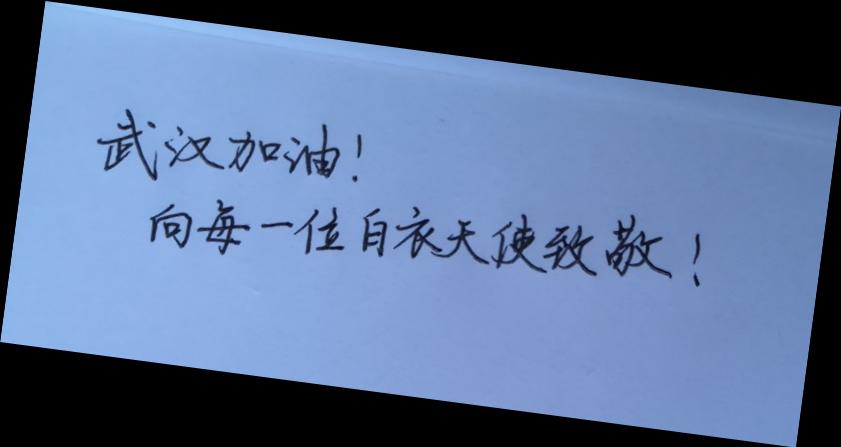 武汉加油！
向每一位白衣天使致敬！